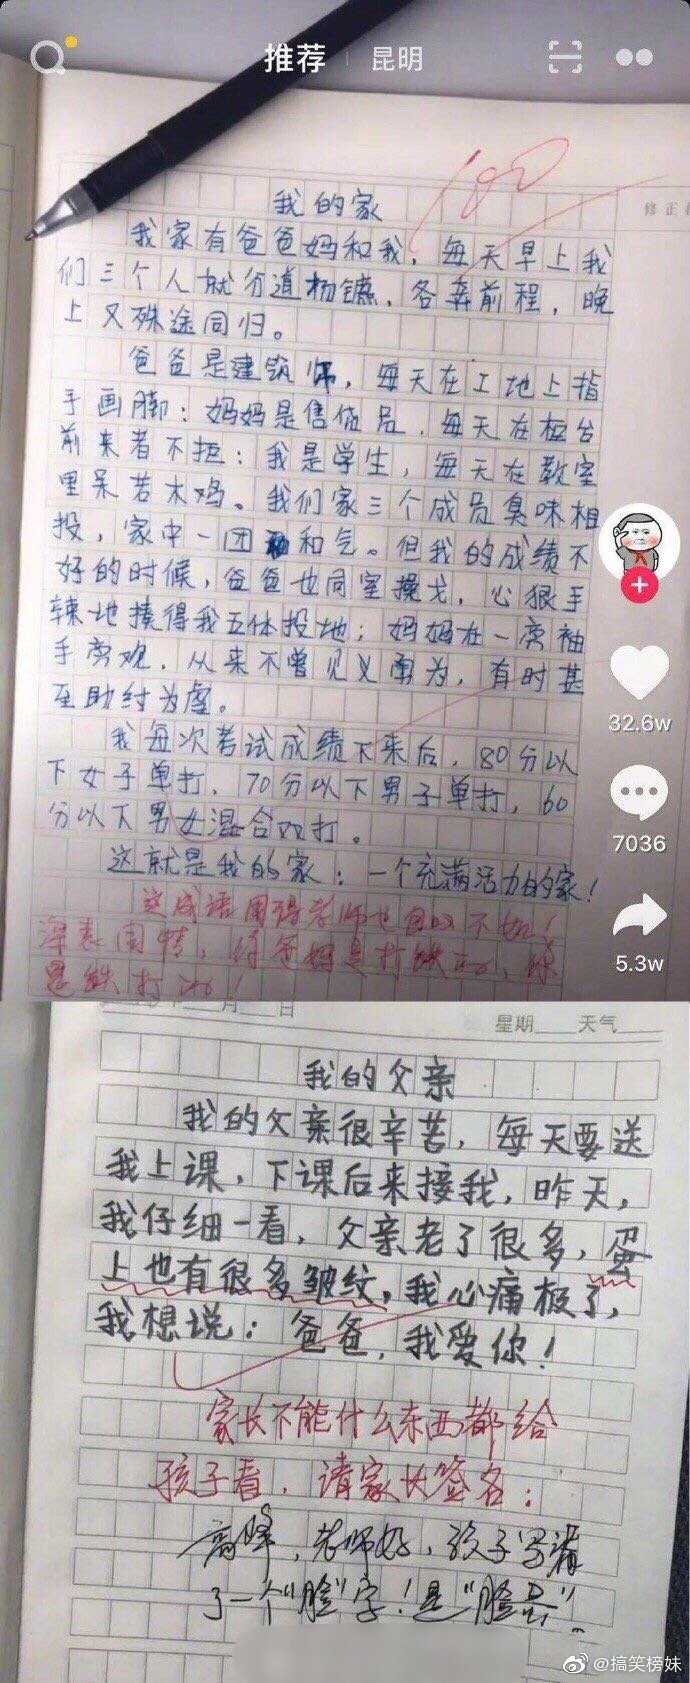 推荐 昆明
100
修正
我的家
我家有爸爸妈和我，每天早上我
们三个人就分道杨镳，各奔前程，晚
上又殊途同归。
爸爸是建筑师，每天在工地上指
手画脚；妈妈是售货员，每天在柜台
前来者不拒；我是学生，每天在教室
里呆若木鸡。我们家三个成员臭味相
投，家中一团和气。但我的成绩不
好的时候，爸爸也同室操戈，心狠手
辣地揍得我五体投地；妈妈在一旁袖
手旁观，从来不曾见义勇为，有时甚
至助纣为虐。
我每次考试成绩下来后，80分以
下女子单打，70分以下男子单打，60
分以下男女混合双打。
这就是我的家：一个充满活力的家！
这成语用得老师也自叹不如！
深表同情，你爸妈是打铁的，你
是铁打的！
32.6w
7036
5.3w
月 日
星期 天气
我的父亲
我的父亲很辛苦，每天要送
我上课，下课后来接我，昨天，
我仔细一看，父亲老了很多，蛋
上也有很多皱纹，我心痛极了，
我想说：爸爸，我爱你！
家长不能什么东西都给
孩子看，请家长签名：
高峰，老师好，孩子写错
了一个“脸”字！是“脸蛋”。
@搞笑榜妹